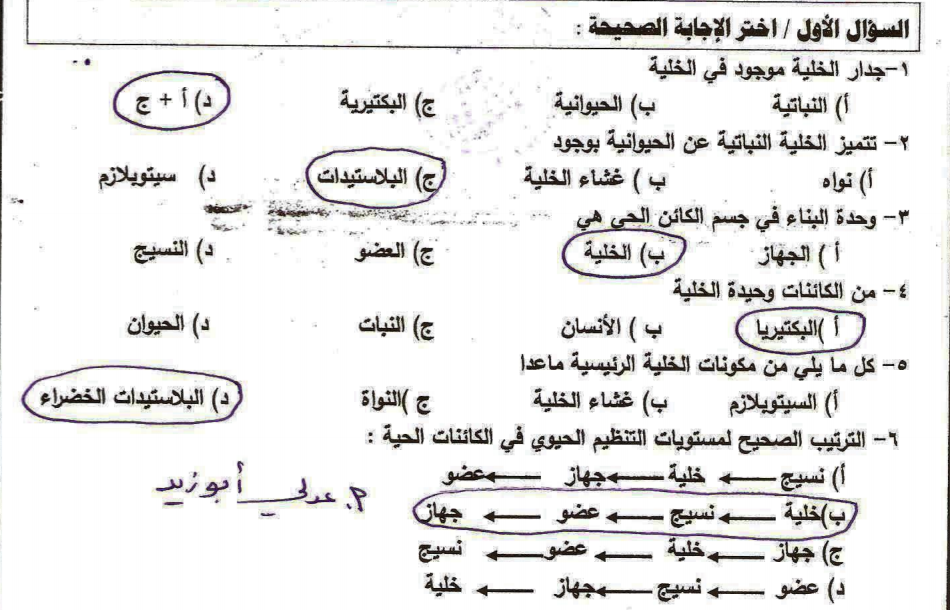 السؤال الأول / اختر الإجابة الصحيحة :
١-جدار الخلية موجود في الخلية
أ) النباتية ب) الحيوانية ج) البكتيرية د) أ + ج
٢- تتميز الخلية النباتية عن الحيوانية بوجود
أ) نواه ب ) غشاء الخلية ج) البلاستيدات د) سيتوبلازم
٣- وحدة البناء في جسم الكائن الحي هي
أ ) الجهاز ب) الخلية ج) العضو د) النسيج
٤- من الكائنات وحيدة الخلية
أ )البكتيريا ب ) الأنسان ج) النبات د) الحيوان
٥- كل ما يلي من مكونات الخلية الرئيسية ماعدا
أ) السيتوبلازم ب) غشاء الخلية ج )النواة د) البلاستيدات الخضراء
٦- الترتيب الصحيح لمستويات التنظيم الحيوي في الكائنات الحية :
أ) نسيج ← خلية ← جهاز ← عضو
ب)خلية ← نسيج ← عضو ← جهاز
م. عدلي أبوزيد
ج) جهاز ← خلية ← عضو ← نسيج
د) عضو ← نسيج ← جهاز ← خلية